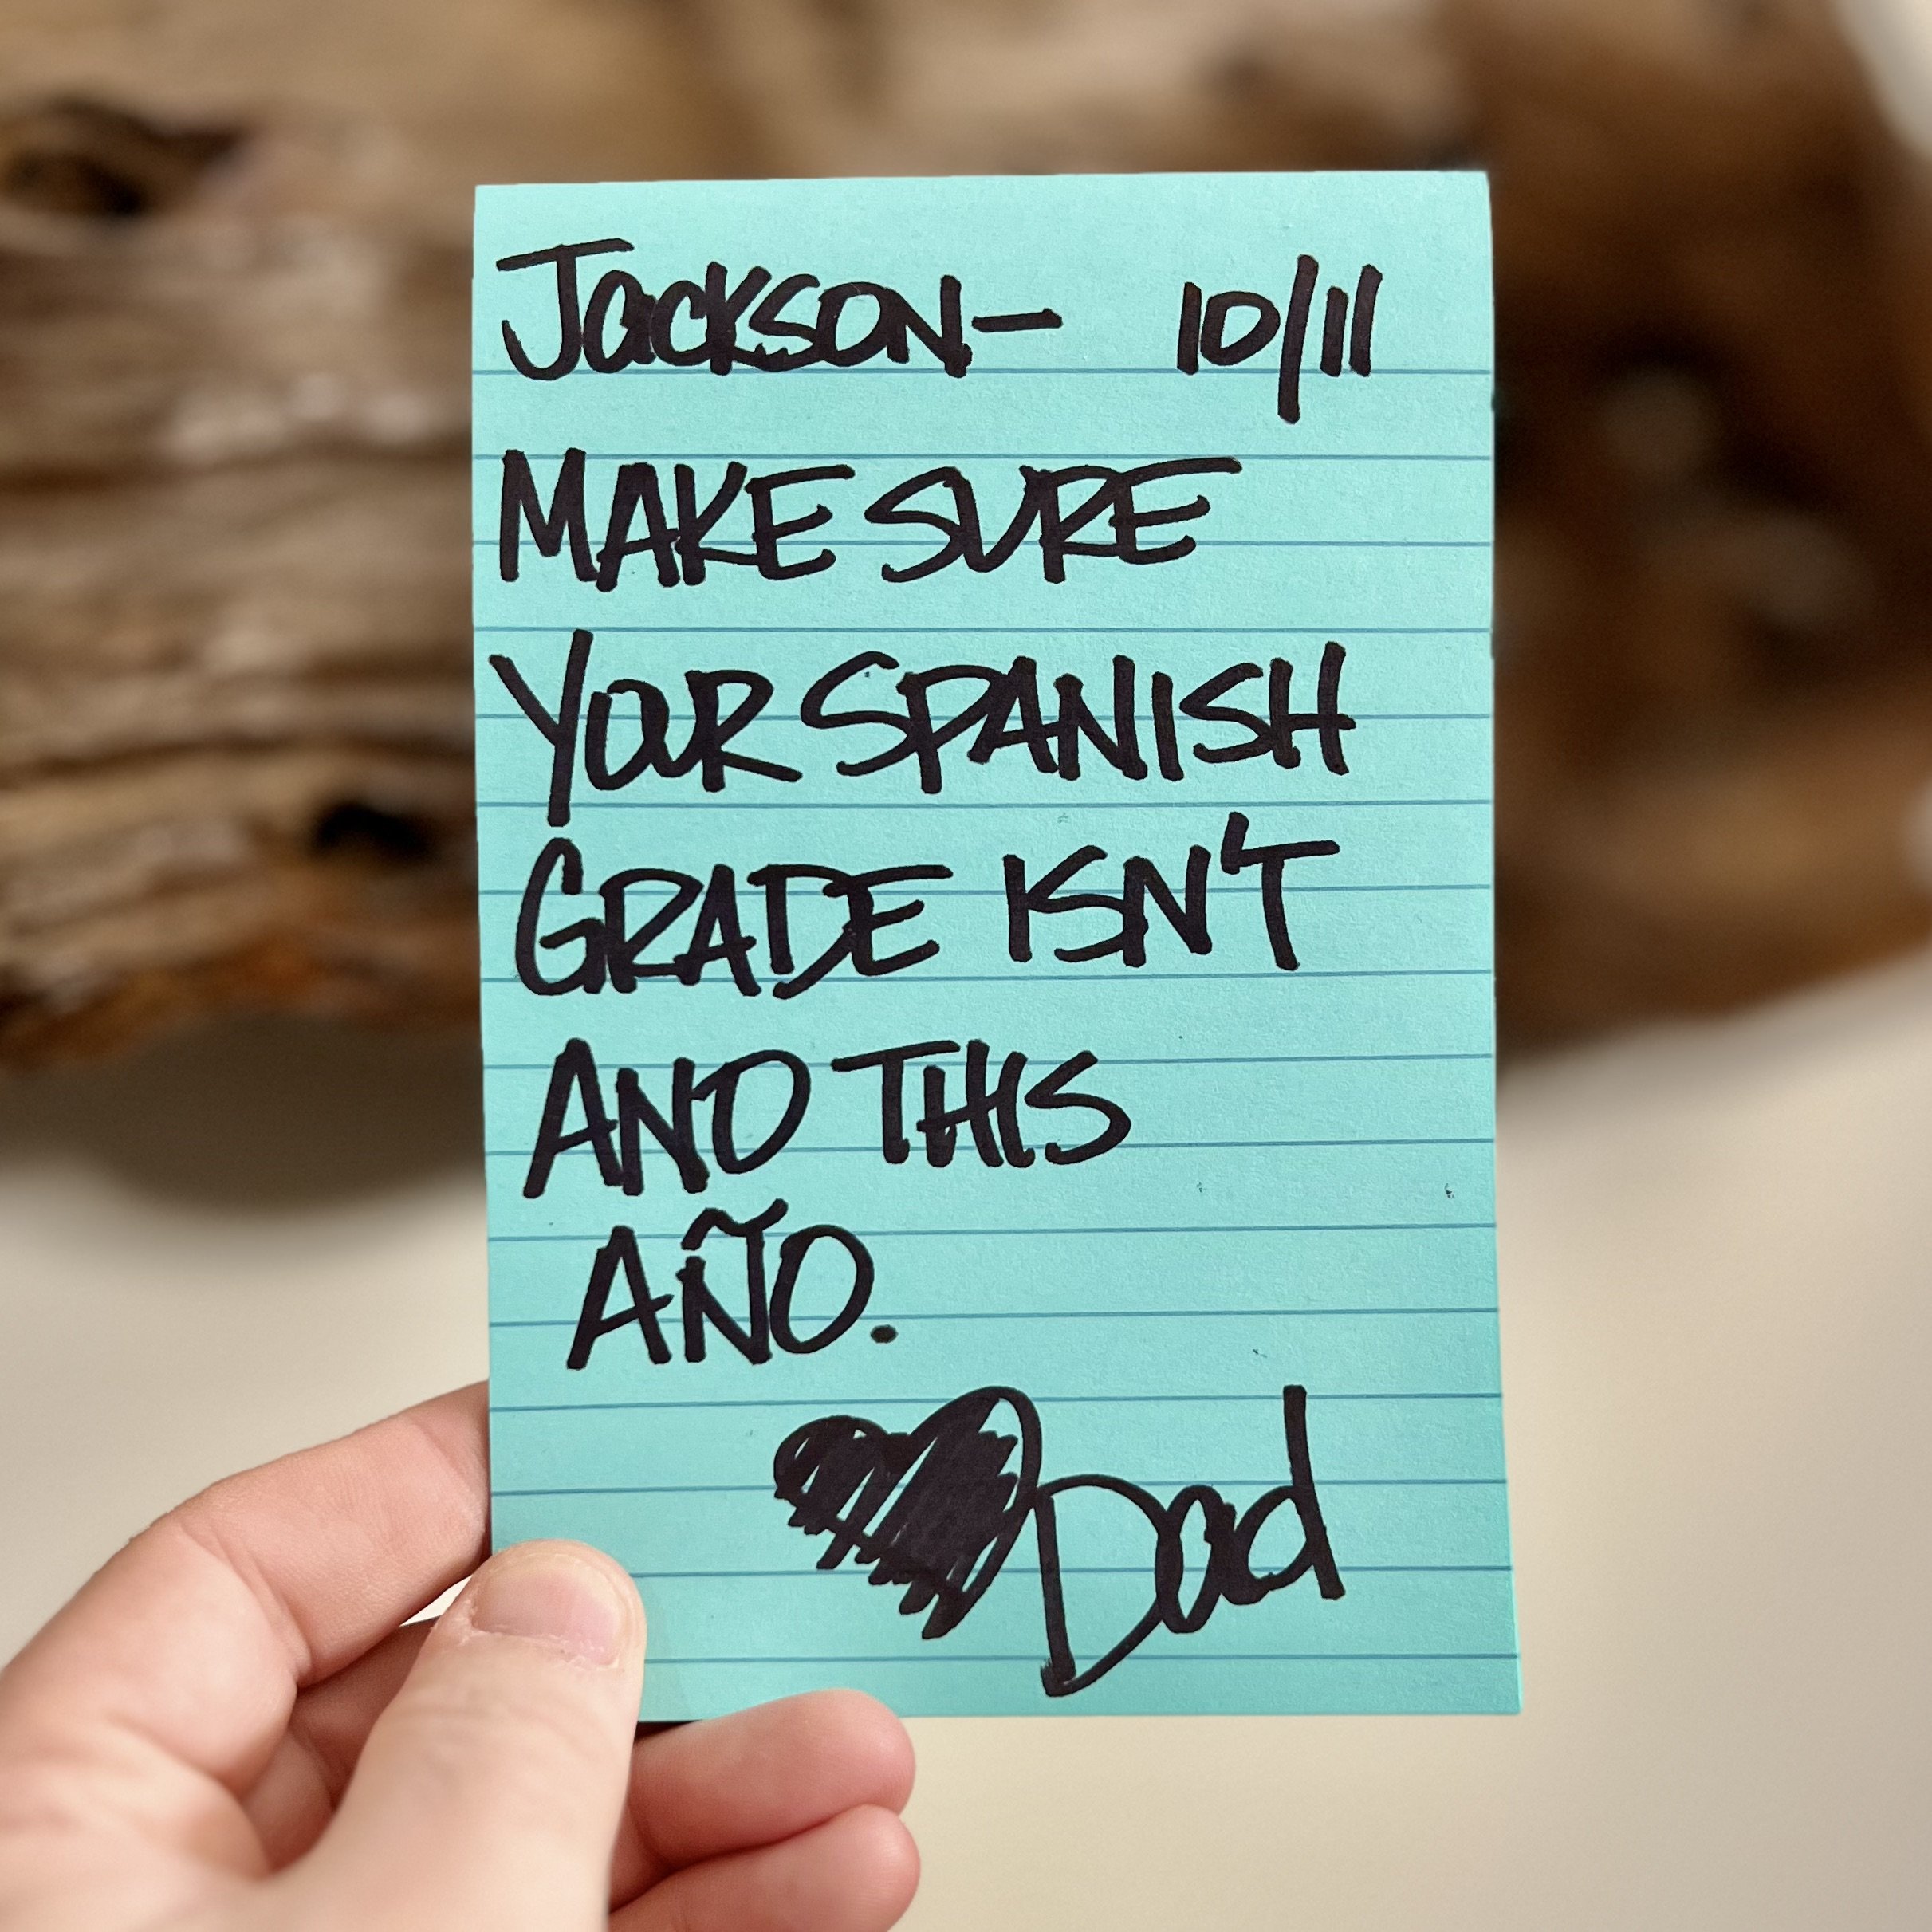 Jackson— 10/11
MAKE SURE
YOUR SPANISH
GRADE ISN'T
AND THIS
AÑO.
♥Dad